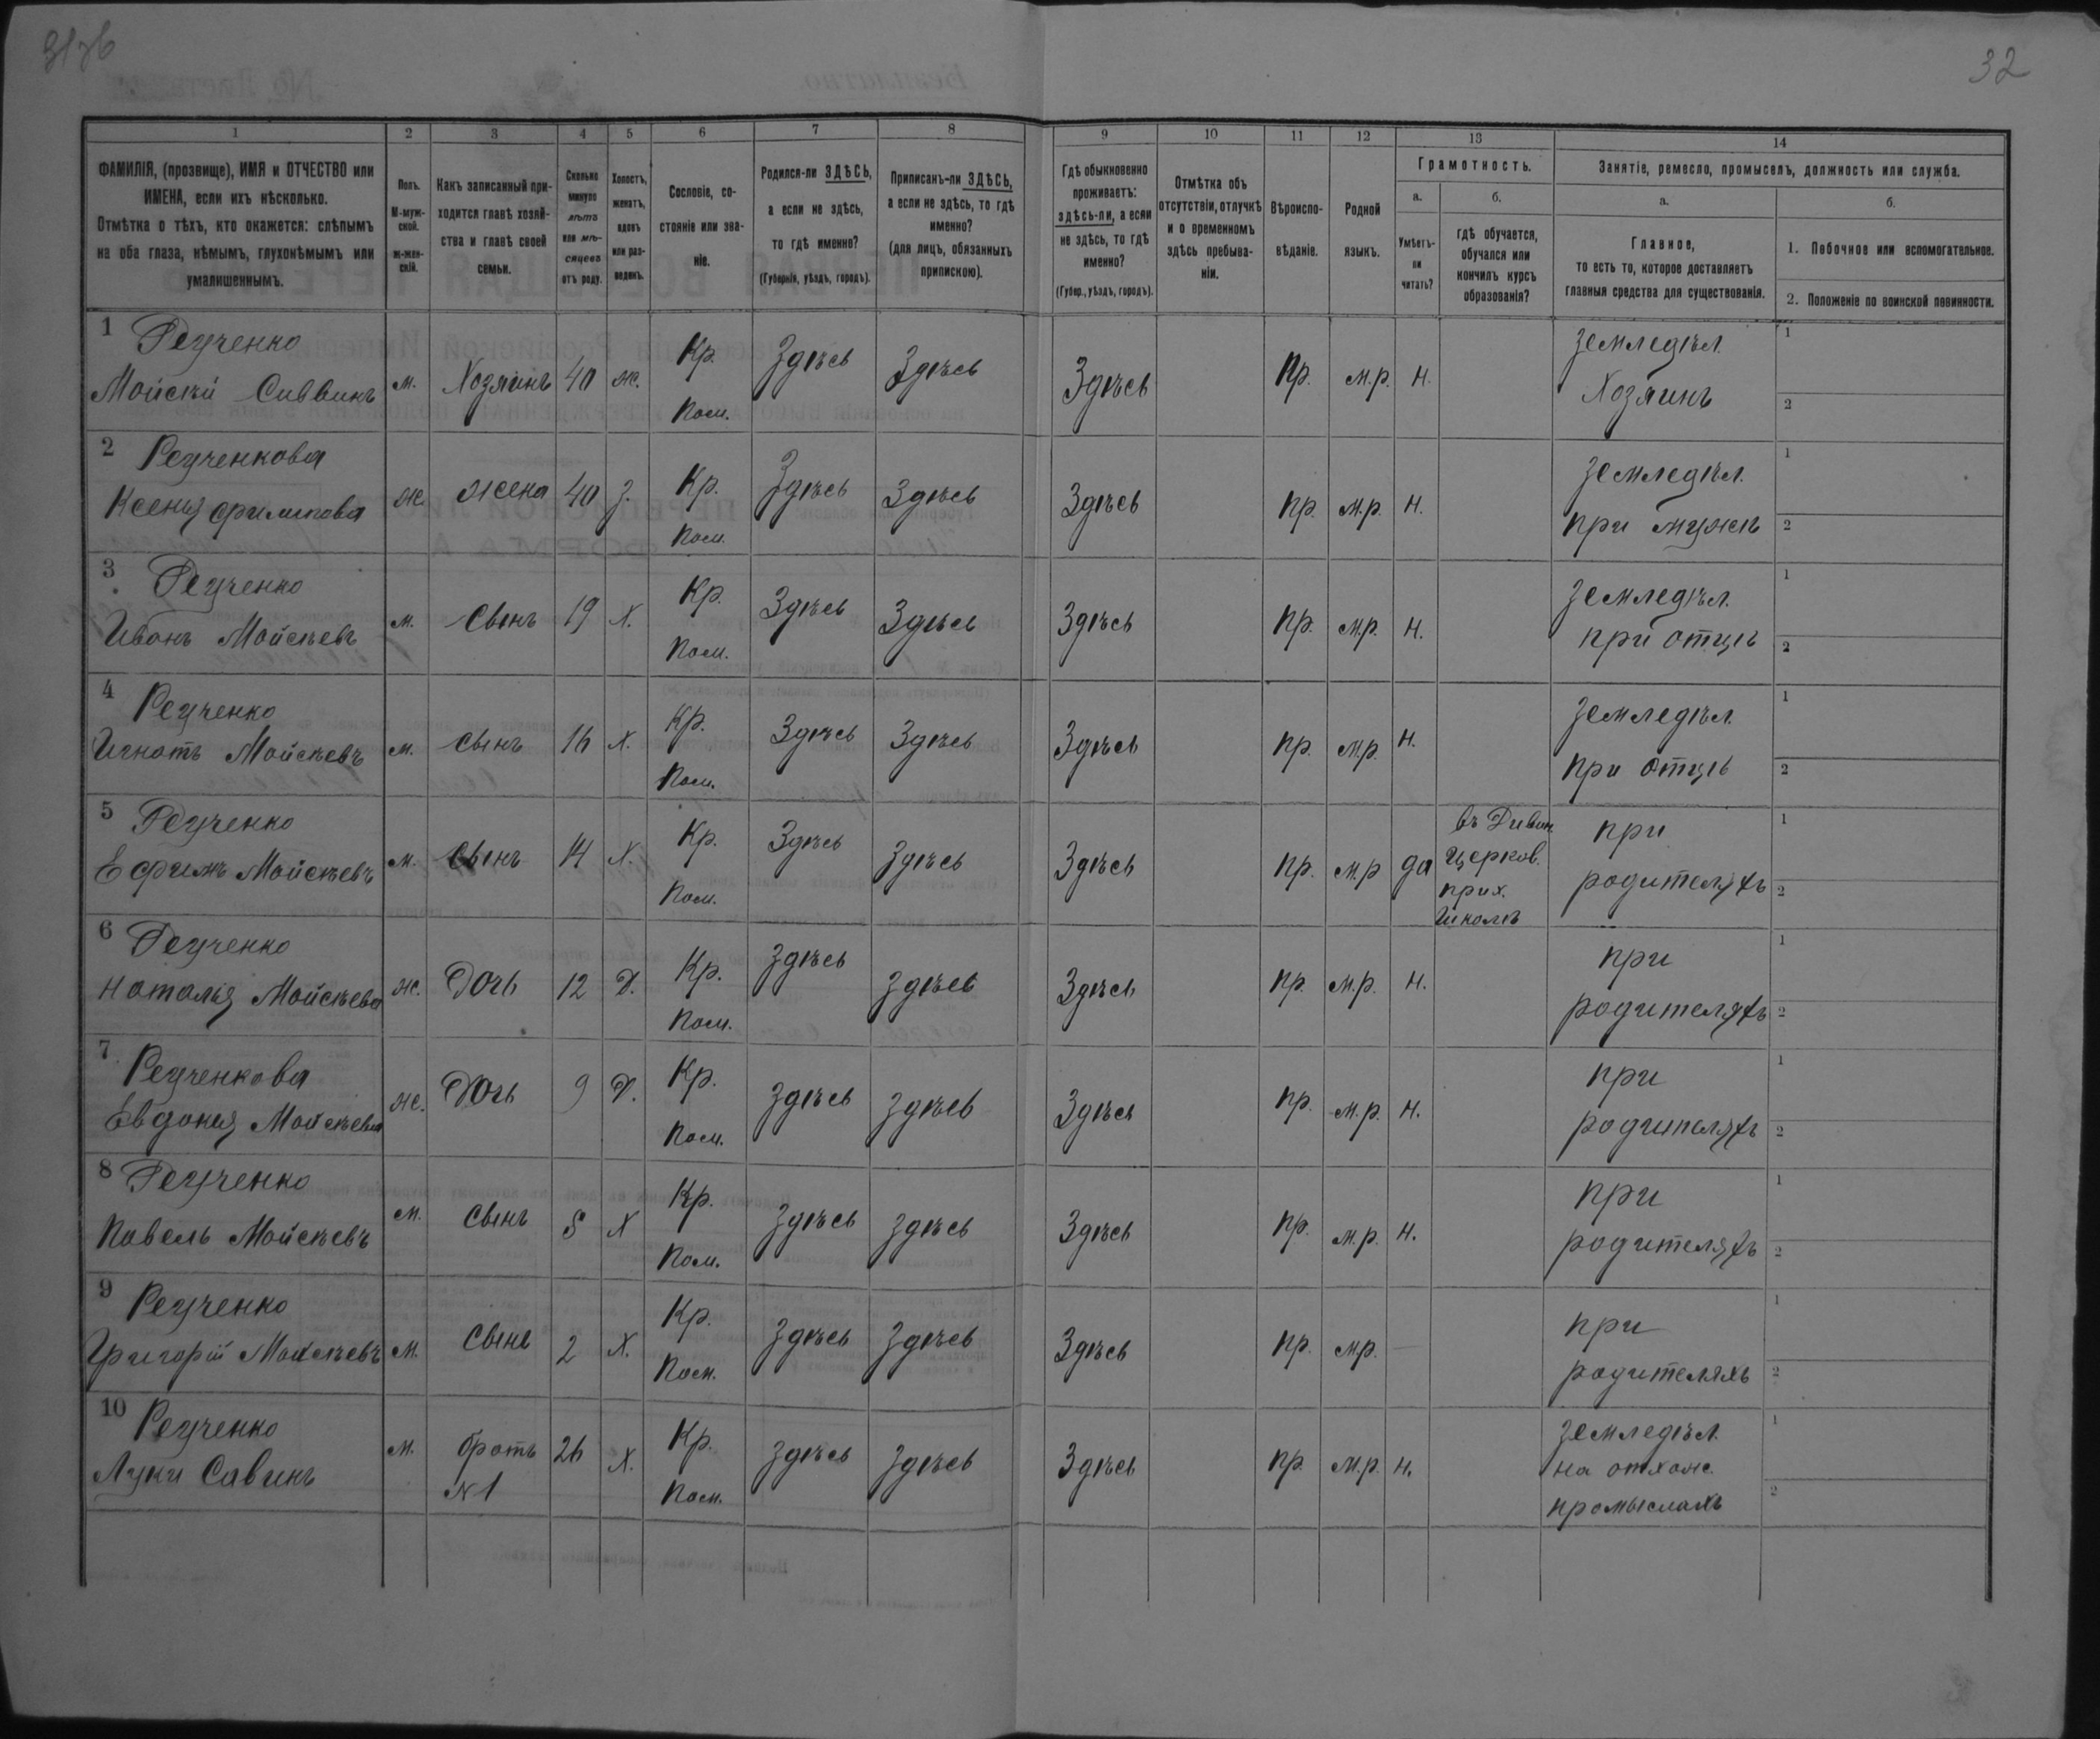 32
1 2 3 4 5 6 7 8 9 10 11 12 13 14
ФАМИЛІЯ, (прозвище), ИМЯ и ОТЧЕСТВО или ИМЕНА, если ихъ нѣсколько.
Отмѣтка о тѣхъ, кто окажется: слѣпымъ на оба глаза, нѣмымъ, глухонѣмымъ или умалишеннымъ.
Полъ. М-мужской. ж-женскій.
Какъ записанный приходится главѣ хозяйства и главѣ своей семьи.
Сколько минуло лѣтъ или мѣсяцевъ отъ роду.
Холостъ, женатъ, вдовъ или разведенъ.
Сословіе, состояніе или званіе.
Родился-ли ЗДѢСЬ, а если не здѣсь, то гдѣ именно?
(Губернія, уѣздъ, городъ).
Приписанъ-ли ЗДѢСЬ, а если не здѣсь, то гдѣ именно?
(для лицъ, обязанныхъ припискою).
Гдѣ обыкновенно проживаетъ: здѣсь-ли, а если не здѣсь, то гдѣ именно?
(Губер., уѣздъ, городъ).
Отмѣтка объ отсутствіи, отлучкѣ и о временномъ здѣсь пребываніи.
Вѣроисповѣданіе.
Родной языкъ.
Грамотность.
а. Умѣетъ-ли читать?
б. гдѣ обучается, обучался или кончилъ курсъ образованія?
Занятіе, ремесло, промыселъ, должность или служба.
а. Главное, то есть то, которое доставляетъ главныя средства для существованія.
б.
1. Побочное или вспомогательное.
2. Положеніе по воинской повинности.
1 Редченко
Мойсѣй Саввинъ м. Хозяинъ 40 ж. Кр. Пом. Здѣсь Здѣсь Здѣсь Пр. м.р. н. земледѣл. Хозяинъ 1 2
2 Редченкова
Ксенія Филипова ж жена 40 з. Кр. Пом. Здѣсь Здѣсь Здѣсь пр. м.р. н. земледѣл. при мужѣ 1 2
3 Редченко
Иванъ Мойсѣевъ м. сынъ 19 х. Кр. Пом. Здѣсь Здѣсь Здѣсь пр. м.р. н. земледѣл. при отцѣ 1 2
4 Редченко
Игнатъ Мойсѣевъ м. сынъ 16 х. Кр. Пом. Здѣсь Здѣсь Здѣсь пр. м.р. н. земледѣл. при отцѣ 1 2
5 Редченко
Ефимъ Мойсѣевъ м. сынъ 14 х. Кр. Пом. Здѣсь здѣсь Здѣсь пр. м.р да въ Дивин. церков. прих. школѣ при родителяхъ 1 2
6 Редченко
Наталья Мойсѣева ж. дочь 12 д. Кр. Пом. здѣсь здѣсь Здѣсь пр. м.р. н. при родителяхъ 1 2
7 Редченкова
Евдокія Мойсѣева ж. дочь 9 д. Кр. Пом. здѣсь здѣсь Здѣсь пр. м.р. н. при родителяхъ 1 2
8 Редченко
Павелъ Мойсѣевъ м. сынъ 5 х Кр. Пом. здѣсь здѣсь Здѣсь пр. м.р. н. при родителяхъ 1 2
9 Редченко
Григорій Мойсѣевъ м. сынъ 2 х. Кр. Пом. здѣсь здѣсь Здѣсь пр. м.р. — при родителяхъ 1 2
10 Редченко
Луки Савинъ м. братъ №1 26 х. Кр. Пом. здѣсь здѣсь Здѣсь пр. м.р. н. земледѣл. на отхож. промыслахъ 1 2